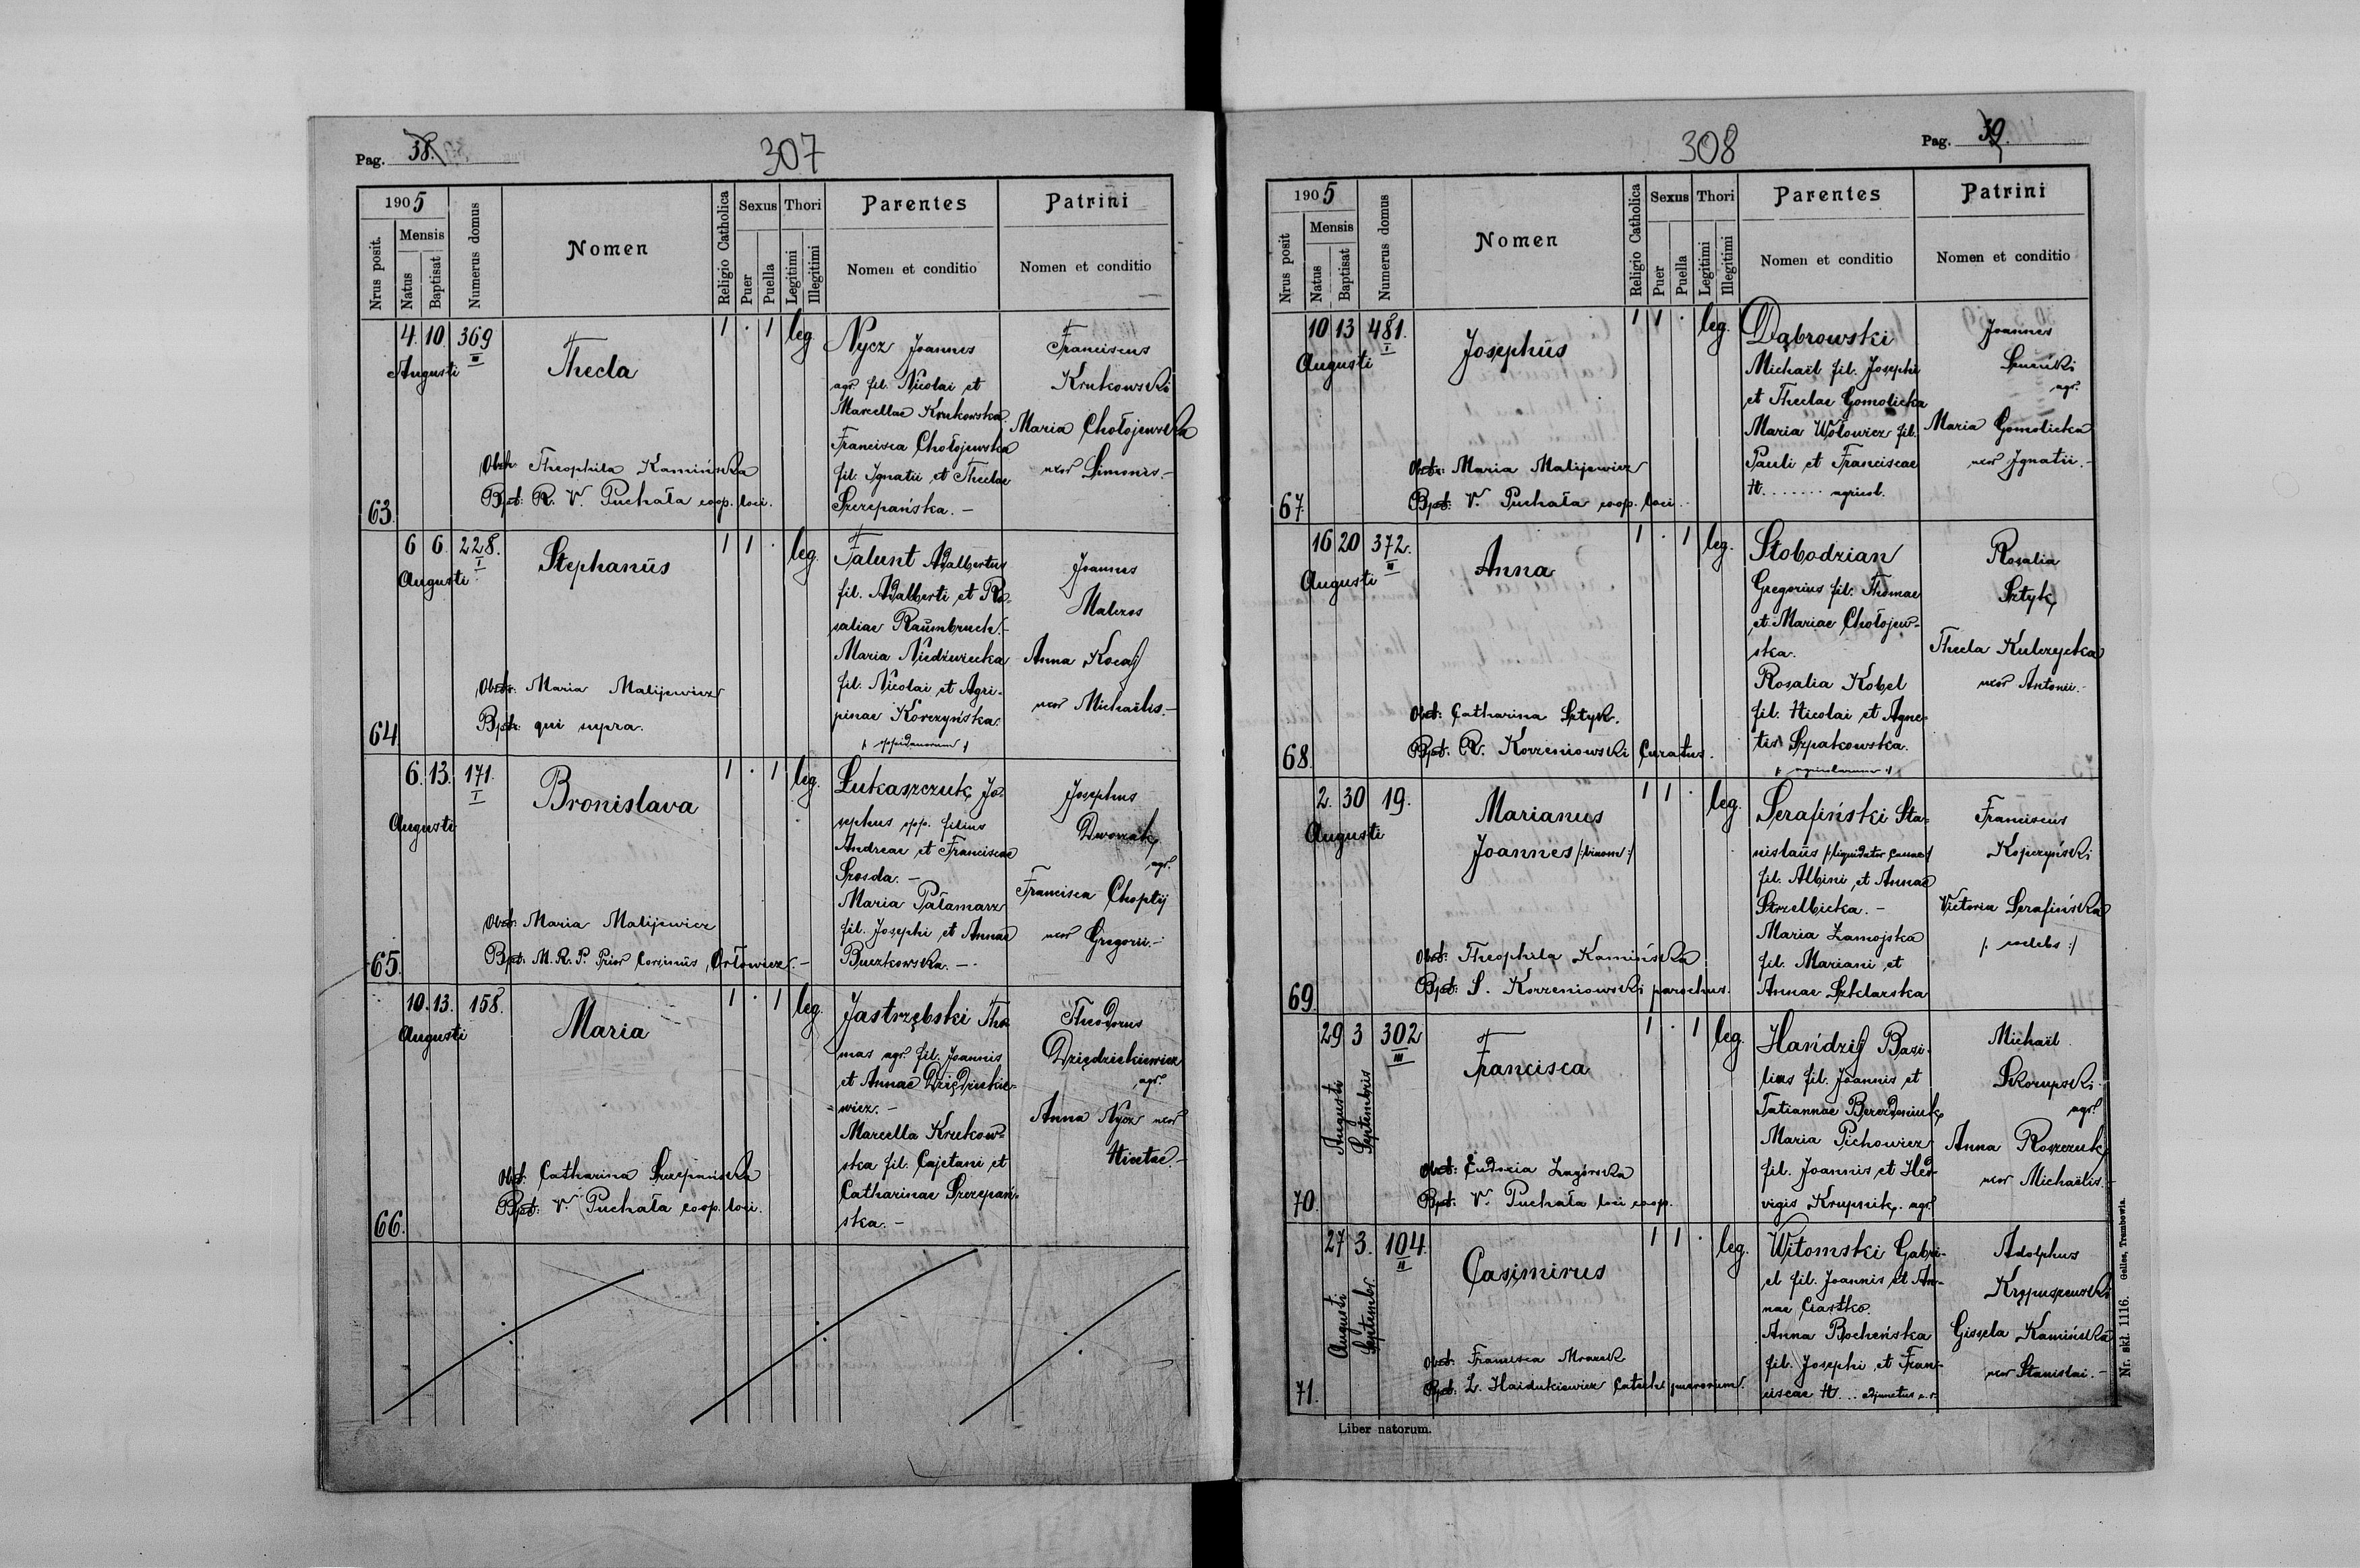 Pag. 38.
307
1905
Nrus posit.
Mensis
Natus
Baptisat
Numerus domus
Nomen
Religio Catholica
Sexus
Puer
Puella
Thori
Legitimi
Illegitimi
Parentes
Nomen et conditio
Patrini
Nomen et conditio
63.
4. 10. 369
III
Augusti
Thecla
1 . 1 leg.
Nycz Joannes
agr. fil. Nicolai et
Marcellae Krukowska.
Francisca Chołojewska
fil. Ignatii et Theclae
Szczepańska. –
Franciscus
Krukowski
Maria Chołojewska
uxor Simonis. –
Obst: Theophila Kamińska
Bpt: R. V. Puchała coop. loci.
64.
6 6. 228.
I
Augusti
Stephanus
1 1 . leg.
Falunt Adalbertus
fil. Adalberti et Ro-
saliae Raumbruch. –
Maria Niedźwiecka
fil. Nicolai et Agri-
pinae Korczyńska.
/: oppidanorum :/
Joannes
Malczos
Anna Kocaj
uxor Michaëlis. –
Obst: Maria Malijewicz
Bpt: qui supra.
65.
6. 13. 171.
I
Augusti
Bronislava
1 . 1 leg.
Łukaszczuk Jo-
sephus opp. filius
Andreae et Franciscae
Szosda. –
Maria Pałamarz
fil. Josephi et Annae
Buczkowska. –
Josephus
Dworzak
agr.
Francisca Choptij
uxor Gregorii. –
Obst: Maria Malijewicz
Bpt: M. R. P. Prior Corsinus Orłowicz. –
66.
10. 13. 158.
Augusti
Maria
1 . 1 leg.
Jastrzębski Tho-
mas agr. fil. Joannis
et Annae Dziędziekie-
wicz. –
Marcella Krukow-
ska fil. Cajetani et
Catharinae Szczepań-
ska. –
Theodorus
Dziędziekiewicz
agr.
Anna Nycz uxor
Nicetae. –
Obst: Catharina Szczepańska
Bpt: V. Puchała coop. loci.
308
Pag. 39.
1905
Nrus posit
Mensis
Natus
Baptisat
Numerus domus
Nomen
Religio Catholica
Sexus
Puer
Puella
Thori
Legitimi
Illegitimi
Parentes
Nomen et conditio
Patrini
Nomen et conditio
67.
10 13 481.
I
Augusti
Josephus
1 1 . leg.
Dąbrowski
Michaël fil. Josephi
et Theclae Gomolicka
Maria Wołowicz fil.
Pauli et Franciscae
N. . . . . . . agricol.
Joannes
agr.
Maria Gomolicka
uxor Ignatii. –
Obst: Maria Malijewicz
Bpt: V. Puchała coop. loci.
68.
16 20 372.
II
Augusti
Anna
1 . 1 leg.
Słobodzian
Gregorius fil. Thomae
et Mariae Chołojew-
ska.
Rosalia Kobel
fil. Nicolai et Agne-
tis Szpakowska.
/: agricolarum :/
Rosalia
Sztyk
Thecla Kulczycka
uxor Antonii. –
Obst: Catharina Sztyk.
Bpt: R. Korzeniowski Curatus.
69.
2. 30 19.
Augusti
Marianus
Joannes /: binom :/
1 1 . leg.
Serafiński Sta-
nislaus /: liquidator cassae :/
fil. Albini et Annae
Strzelbicka. –
Maria Zamojska
fil. Mariani et
Annae Szklarska
Franciscus
Kopczyński
Victoria Serafińska
/: coelebs :/
Obst: Theophila Kamińska
Bpt: S. Korzeniowski parochus.
70.
29 3 302
III
Augusti
Septembris
Francisca
1 . 1 leg.
Handzij Basi-
lius fil. Joannis et
Tatiannae Berezdeniuk
Maria Pichowicz
fil. Joannis et Hed-
vigis Krupnik. agr.
Michaël
Skorupski
agr.
Anna Roszczuk
uxor Michaëlis. –
Obst: Eudocia Zagórska
Bpt: V. Puchała loci coop.
71.
27 3. 104.
II
Augusti
Septembr.
Casimirus
1 1 . leg.
Witomski Gabri-
el fil. Joannis et An-
nae Ciastko.
Anna Bocheńska
fil. Josephi et Fran-
ciscae N. . . . adjunctus
Adolphus
Gissela Kamińska
uxor Stanislai. –
Obst: Francisca Mrazek
Bpt: L. Haidukiewicz Catech. puerorum.
Liber natorum.
Nr. skł. 1116. Gelles, Trembowla.